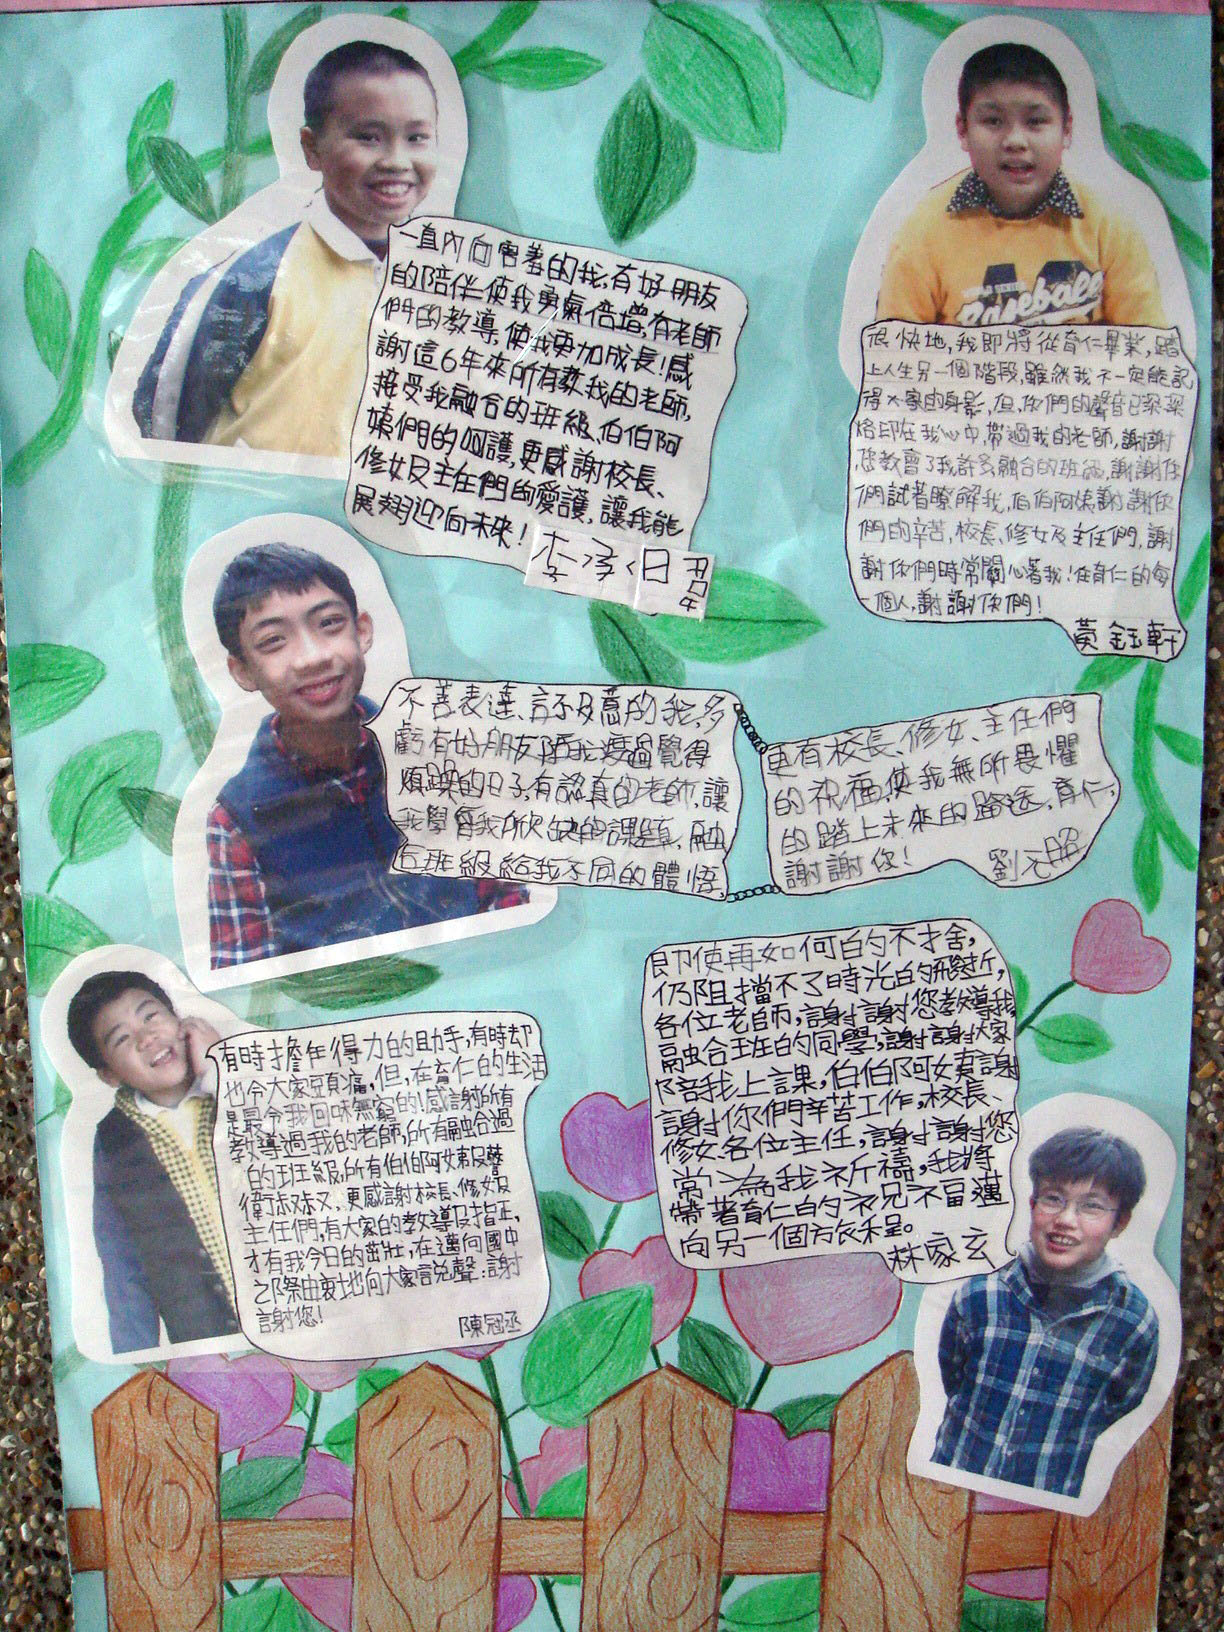 一直內向害羞的我,有好朋友
的陪伴使我勇氣倍增,有老師
們的教導,使我更加成長!感
謝這6年來所有教我的老師,
接受我融合的班級、伯伯阿
姨們的呵護,更感謝校長、
修女及主任們的愛護,讓我能
展翅迎向未來!
Baseball
很快地,我即將從育仁畢業,踏
上人生另一個階段,雖然我不一定能記
得大家的身影,但,你們的聲音已深深
烙印在我心中,帶過我的老師,謝謝
您教會了我許多融合的班級,謝謝你
們試著瞭解我,伯伯阿姨謝謝你
們的辛苦,校長、修女及主任們,謝
謝你們時常關心著我!在育仁的每
一個人,謝謝你們!
黃鈺軒
不善表達、言不及意的我,多
虧有好朋友陪我度過覺得
煩躁的日子,有認真的老師,讓
我學會我所欠缺的課題,融
合班級給我不同的體悟,
更有校長、修女、主任們
的祝福,使我無所畏懼
的踏上未來的路途,育仁,
謝謝您!
劉元照
有時擔任得力的助手,有時却
也令大家頭痛,但,在育仁的生活
是最令我回味無窮的!感謝所有
教導過我的老師,所有融合過
的班級,所有伯伯阿姨及警
衛叔叔,更感謝校長、修女及
主任們,有大家的教導及指正,
才有我今日的茁壯,在邁向國中
之際由衷地向大家說聲:謝
謝您!
陳冠丞
即使再如何的不捨,
仍阻擋不了時光的飛逝,
各位老師,謝謝您教導我,
融合班的同學,謝謝大家
陪我上課,伯伯阿姨謝
謝你們辛苦工作,校長、
修女、各位主任,謝謝您
常為我祈禱,我將
帶著育仁的祝福邁
向另一個旅程。
林家玄